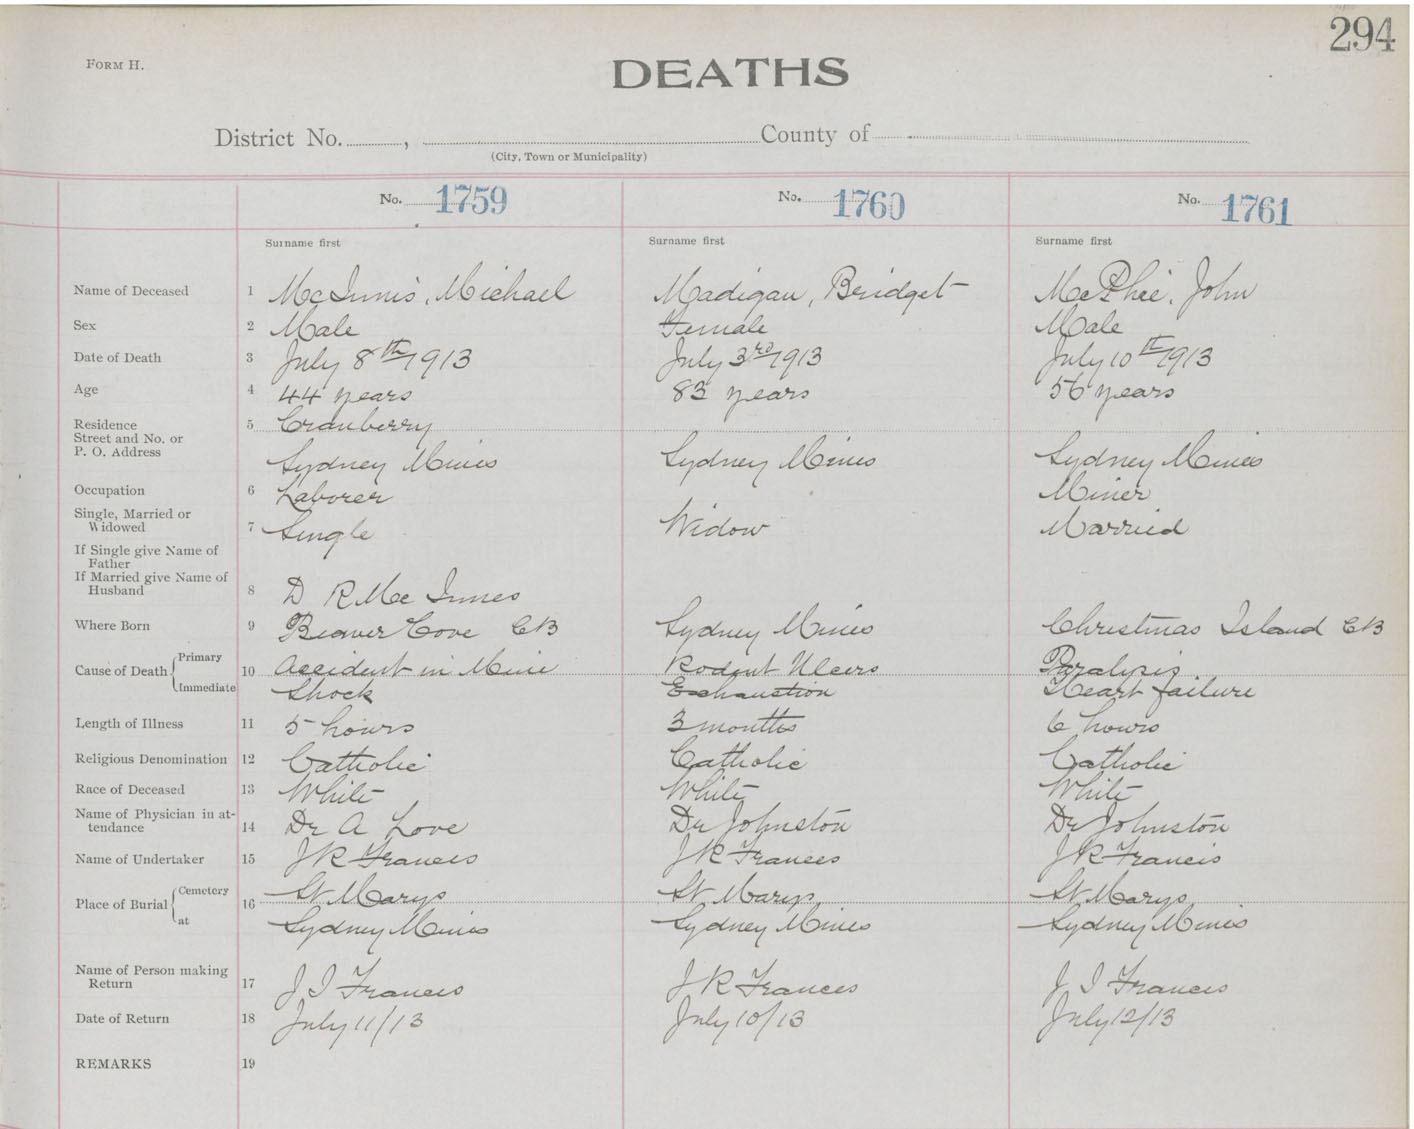 294
FORM H.
DEATHS
District No. , County of
(City, Town or Municipality)
No. 1759 No. 1760 No. 1761
Surname first Surname first Surname first
Name of Deceased 1 McInnis, Michael Madigan, Bridget McPhee, John
Sex 2 Male Female Male
Date of Death 3 July 8th 1913 July 3rd 1913 July 10th 1913
Age 4 44 years 83 years 56 years
Residence 5 Cranberry
Street and No. or
P. O. Address Sydney Mines Sydney Mines Sydney Mines
Occupation 6 Laborer Miner
Single, Married or
Widowed 7 Single Widow Married
If Single give Name of
Father
If Married give Name of
Husband 8 D R Mc Innes
Where Born 9 Beaver Cove CB Sydney Mines Christmas Island CB
Cause of Death Primary 10 Accident in Mine Rodent Ulcers Paralysis
Immediate Shock Exhaustion Heart failure
Length of Illness 11 5 hours 3 months 6 hours
Religious Denomination 12 Catholic Catholic Catholic
Race of Deceased 13 White White White
Name of Physician in at-
tendance 14 Dr A Love Dr Johnston Dr Johnston
Name of Undertaker 15 J R Francis J R Francis J R Francis
Place of Burial Cemetery 16 St Marys St Marys St Marys
at Sydney Mines Sydney Mines Sydney Mines
Name of Person making
Return 17 J I Francis J R Francis J I Francis
Date of Return 18 July 11/13 July 10/13 July 12/13
REMARKS 19